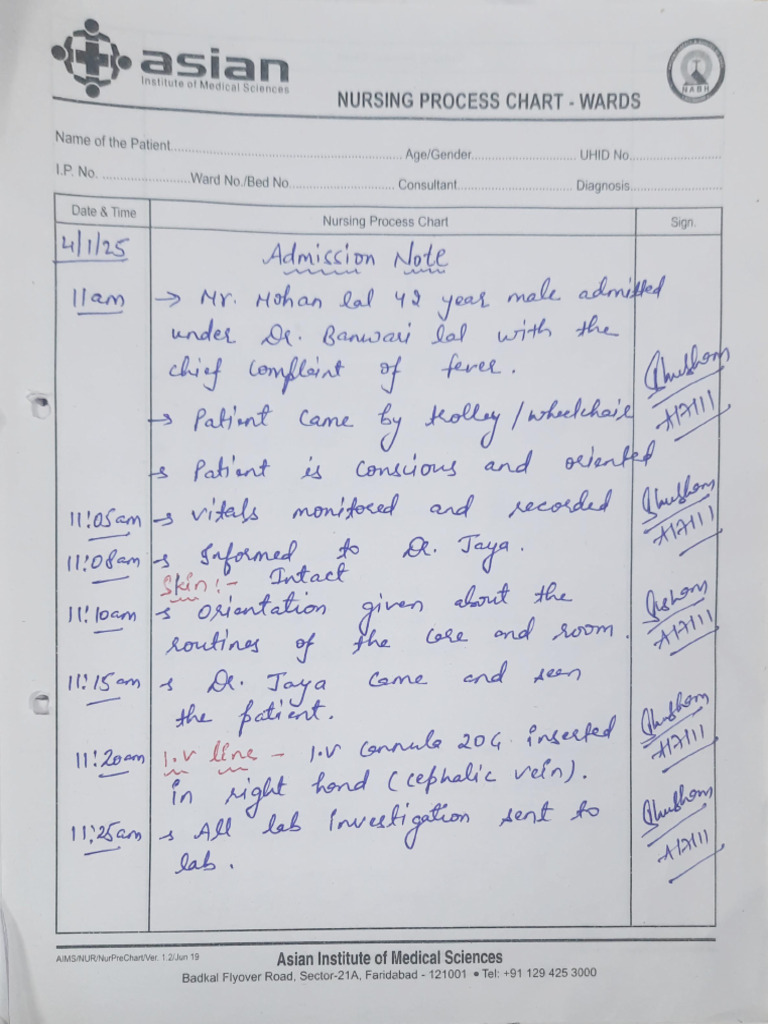 asian
Institute of Medical Sciences
NABH
NURSING PROCESS CHART - WARDS
Name of the Patient.................... Age/Gender.................... UHID No....................
I.P. No. .................... Ward No./Bed No.................... Consultant.................... Diagnosis....................
Date & Time Nursing Process Chart Sign.
4/1/25 Admission Note
11am → Mr. Mohan lal 42 year male admitted
under Dr. Banwari lal with the
chief complaint of fever.
→ Patient came by trolley / wheelchair
A17111
→ Patient is conscious and oriented
11:05am → vitals monitored and recorded
A17111
11:08am → Informed to Dr. Jaya.
Skin:- Intact
11:10am → orientation given about the
routines of the care and room.
A17111
11:15am → Dr. Jaya came and seen
the patient.
11:20am I.V line - I.V cannula 20G inserted
A17111
in right hand (cephalic vein).
11:25am → All lab investigation sent to
lab.
A17111
AIMS/NUR/NurPreChart/Ver. 1.2/Jun 19
Asian Institute of Medical Sciences
Badkal Flyover Road, Sector-21A, Faridabad - 121001 • Tel: +91 129 425 3000